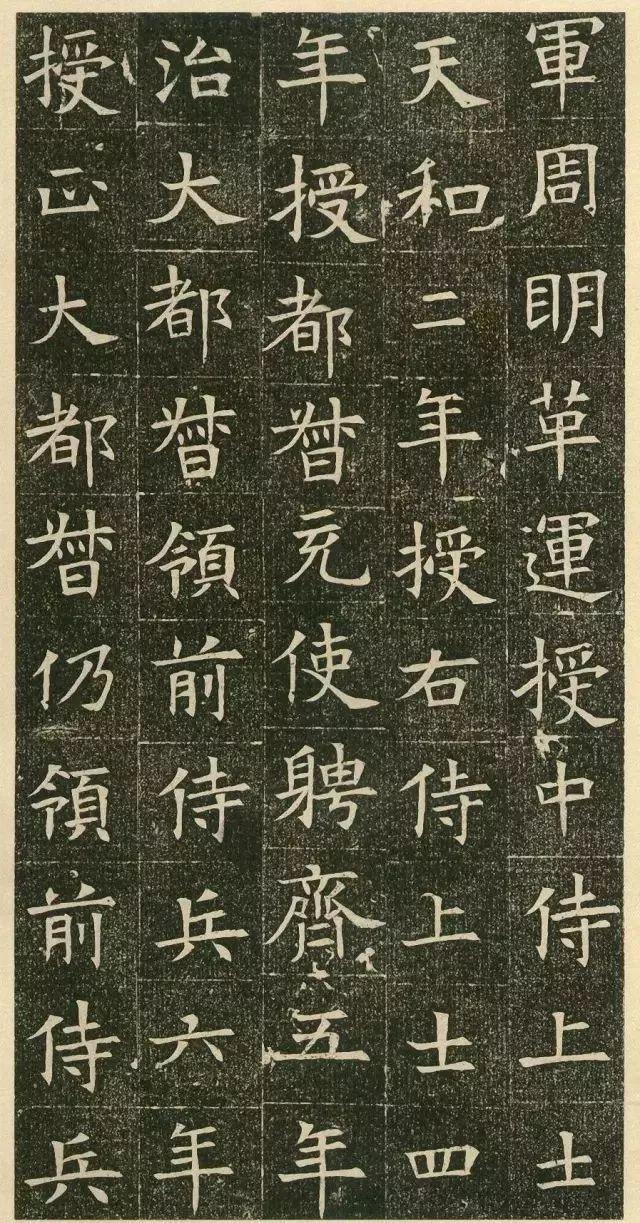 軍周明革運授中侍上士
天和二年授右侍上士四
年授都督充使聘齊五年
治大都督領前侍兵六年
授正大都督仍領前侍兵